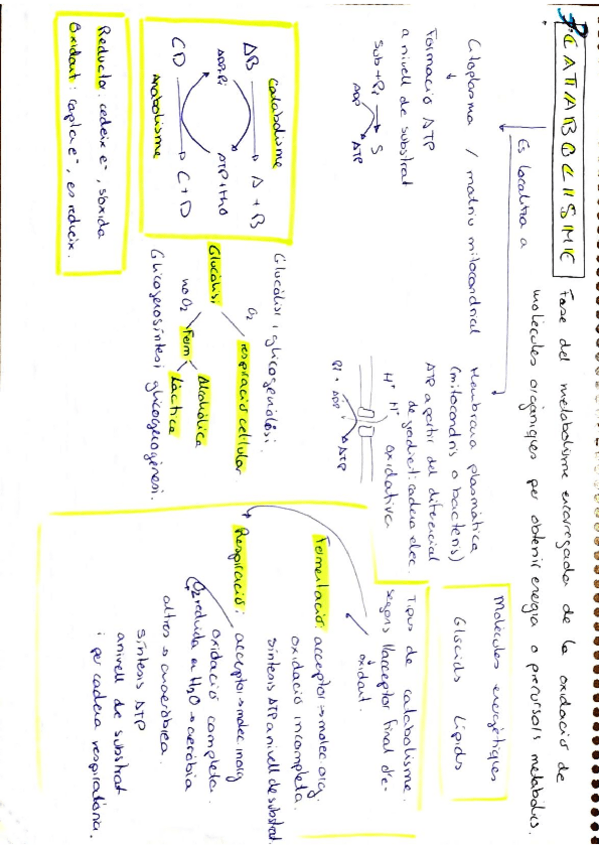 CATABOLISME
Fase del metabolisme encarregada de la oxidació de
molècules orgàniques per obtenir energia o precursals metabolics.
Es localitza a
Citoplasma / matriu mitocondrial
Formació ATP
a nivell de substrat
Sub + Pi → S
ADP ATP
Membrana plasmàtica
(mitocondris o bacteris)
ATP a partir del diferencial
de gradient: cadena elec.
H+ H+ oxidativa
Pi + ADP ATP
Molècules energètiques
Glúcids Lípids
catabolisme
AB → A + B
ADP+Pi ATP+H2O
CD → C + D
anabolisme
Glucòlisi i glicogenòlisi.
O2 respiració cel·lular
Glucòlisi
no O2 Ferm Alcohòlica
Làctica
Glicogenosíntesi glicogenogènesi.
Tipus de catabolisme.
segons l'acceptor final d'e-
oxidant.
Fermentació: acceptor → molec org.
oxidació incompleta.
síntesis ATP a nivell de substrat.
Respiració: acceptor → molec inorg
oxidació completa.
O2 reduida a H2O → aeròbia
altres → anaeròbica.
síntesis ATP
a nivell de substrat
i per cadena respiratòria.
Reductor: cedeix e-, s'oxida
Oxidant: capta e-, es redueix.